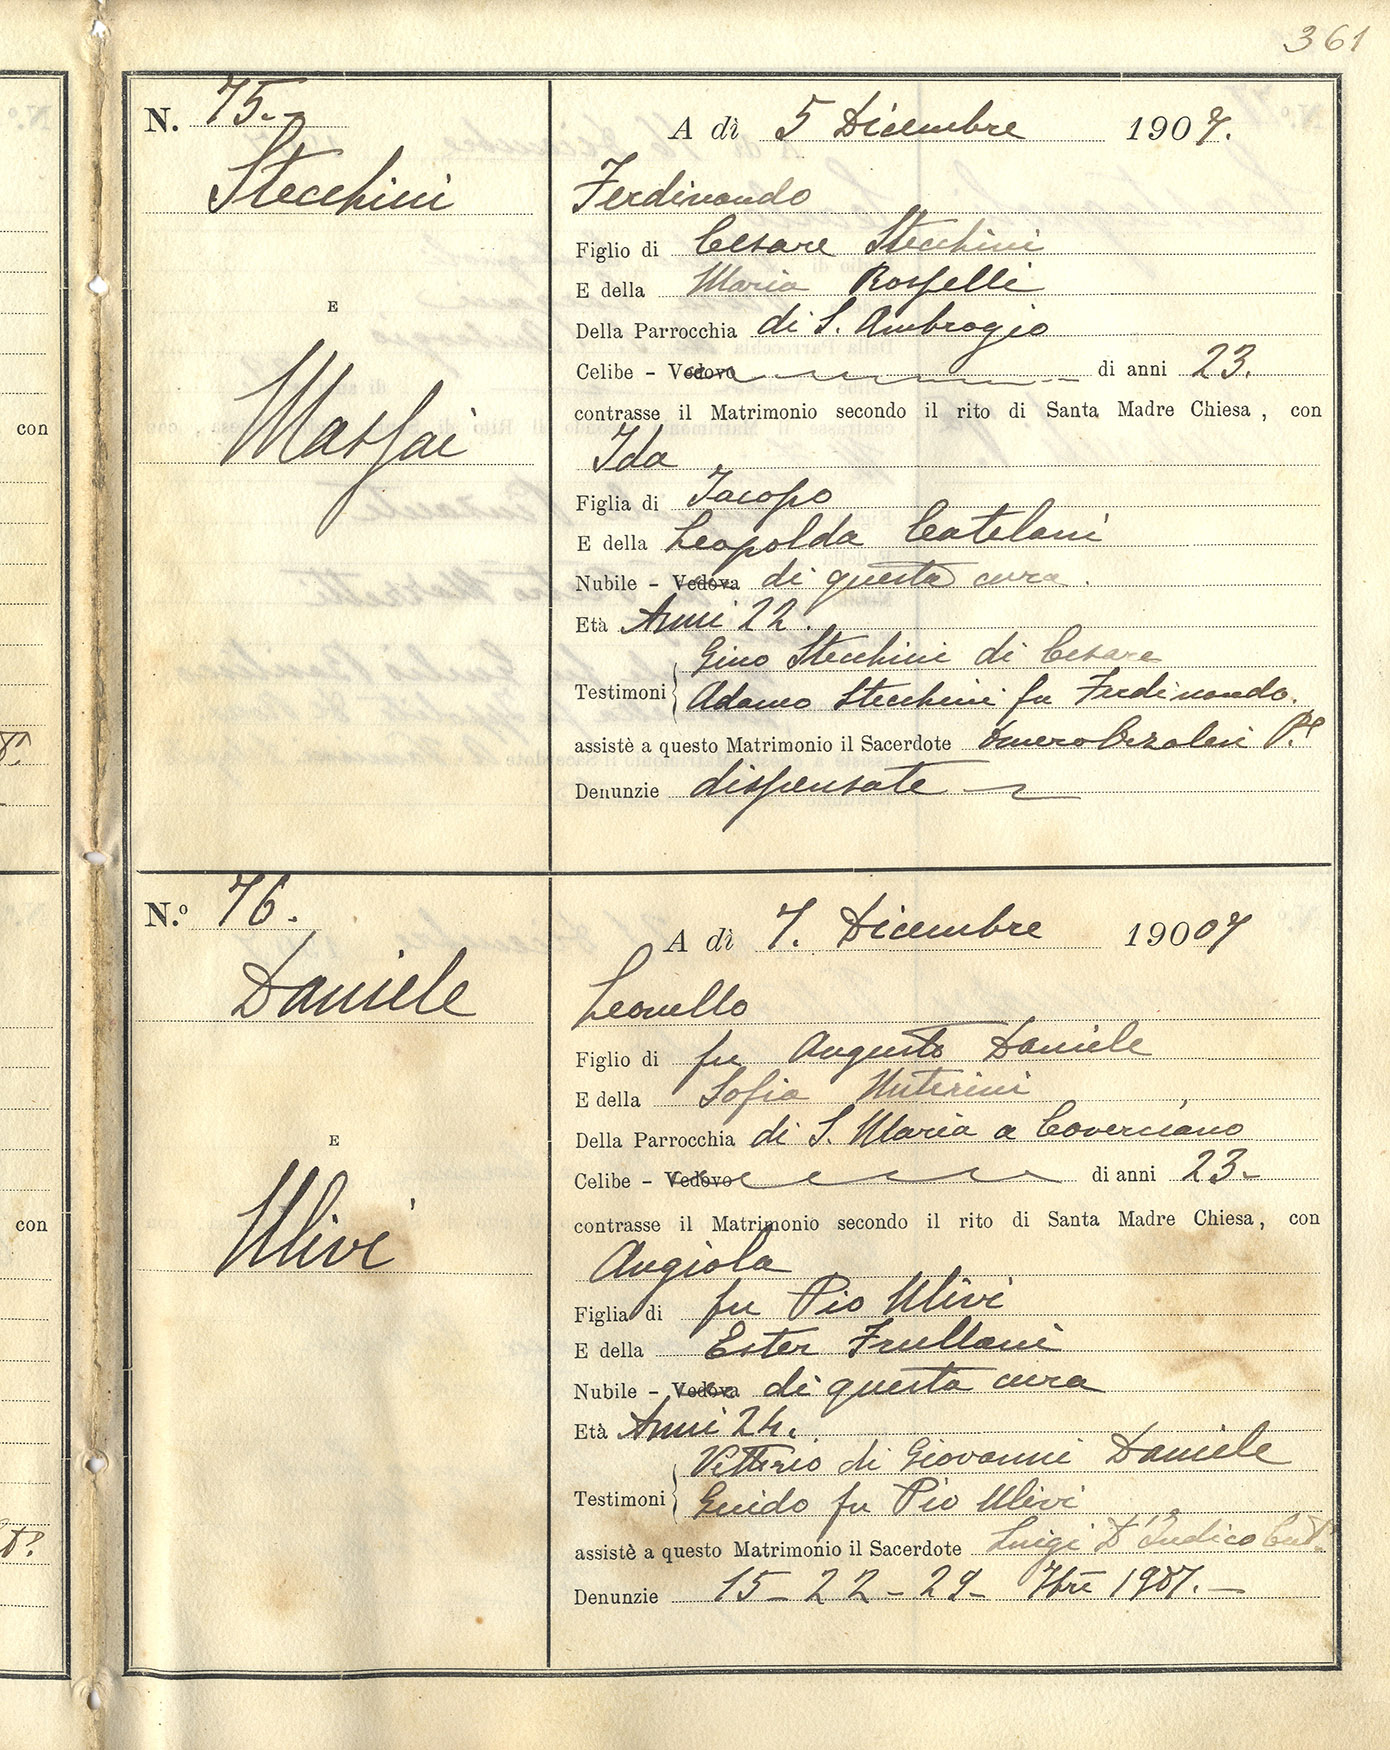 361
N. 75.-
Stecchini
E
Massai
A dì 5 Dicembre 1907.
Ferdinando
Figlio di Cesare Stecchini
E della Maria Rosselli
Della Parrocchia di S. Ambrogio
Celibe - Vedovo di anni 23.
contrasse il Matrimonio secondo il rito di Santa Madre Chiesa, con
Ida
Figlia di Jacopo
E della Leopolda Catelani
Nubile - Vedova di questa cura.
Età Anni 22.
Gino Stecchini di Cesare
Testimoni
Adamo Stecchini fu Ferdinando.
assistè a questo Matrimonio il Sacerdote
Denunzie dispensate
N.º 76.
Daniele
E
Ulivi
A dì 7. Dicembre 19007
Leonello
Figlio di fu Augusto Daniele
E della Sofia
Della Parrocchia di S. Maria a Coverciano
Celibe - Vedovo di anni 23-
contrasse il Matrimonio secondo il rito di Santa Madre Chiesa, con
Angiola
Figlia di fu Pio Ulivi
E della Ester Frullani
Nubile - Vedova di questa cura
Età Anni 24.
Vittorio di Giovanni Daniele
Testimoni
Guido fu Pio Ulivi
assistè a questo Matrimonio il Sacerdote Luigi D'Indico
Denunzie 15 - 22 - 29 - 7bre 1907.-
con
con